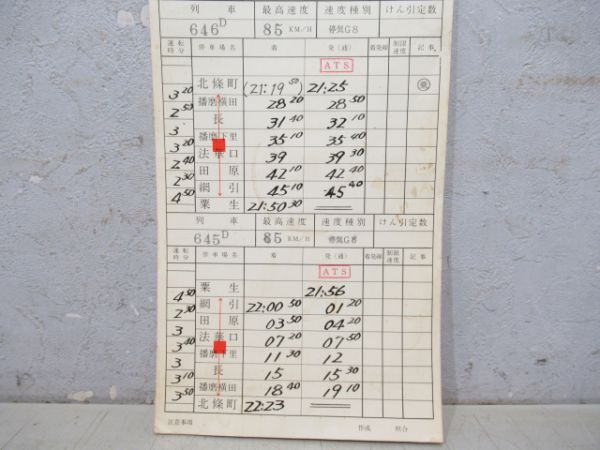 列 車 最高速度 速度種別 けん引定数
646D 85 KM/H 停気G8
運転時分 停車場名 着 発(通) 着発線 制限速度 記事
ATS
北條町 (21:19 50) 21:25
3 20
播磨横田 28 20 28 50
2 50
長 31 40 32 10
3
播磨下里 35 10 35 40
3 20
法華口 39 39 30
2 40
田原 42 10 42 40
2 30
網引 45 10 45 40
4 50
粟生 21:50 30
列 車 最高速度 速度種別 けん引定数
645D 85 KM/H 停気G8
運転時分 停車場名 着 発(通) 着発線 制限速度 記事
ATS
粟生 21:56
4 50
網引 22:00 50 01 20
2 30
田原 03 50 04 20
3
法華口 07 20 07 50
3 40
播磨下里 11 30 12
3
長 15 15 30
3 10
播磨横田 18 40 19 10
3 50
北條町 22:23
注意事項 作成 照合